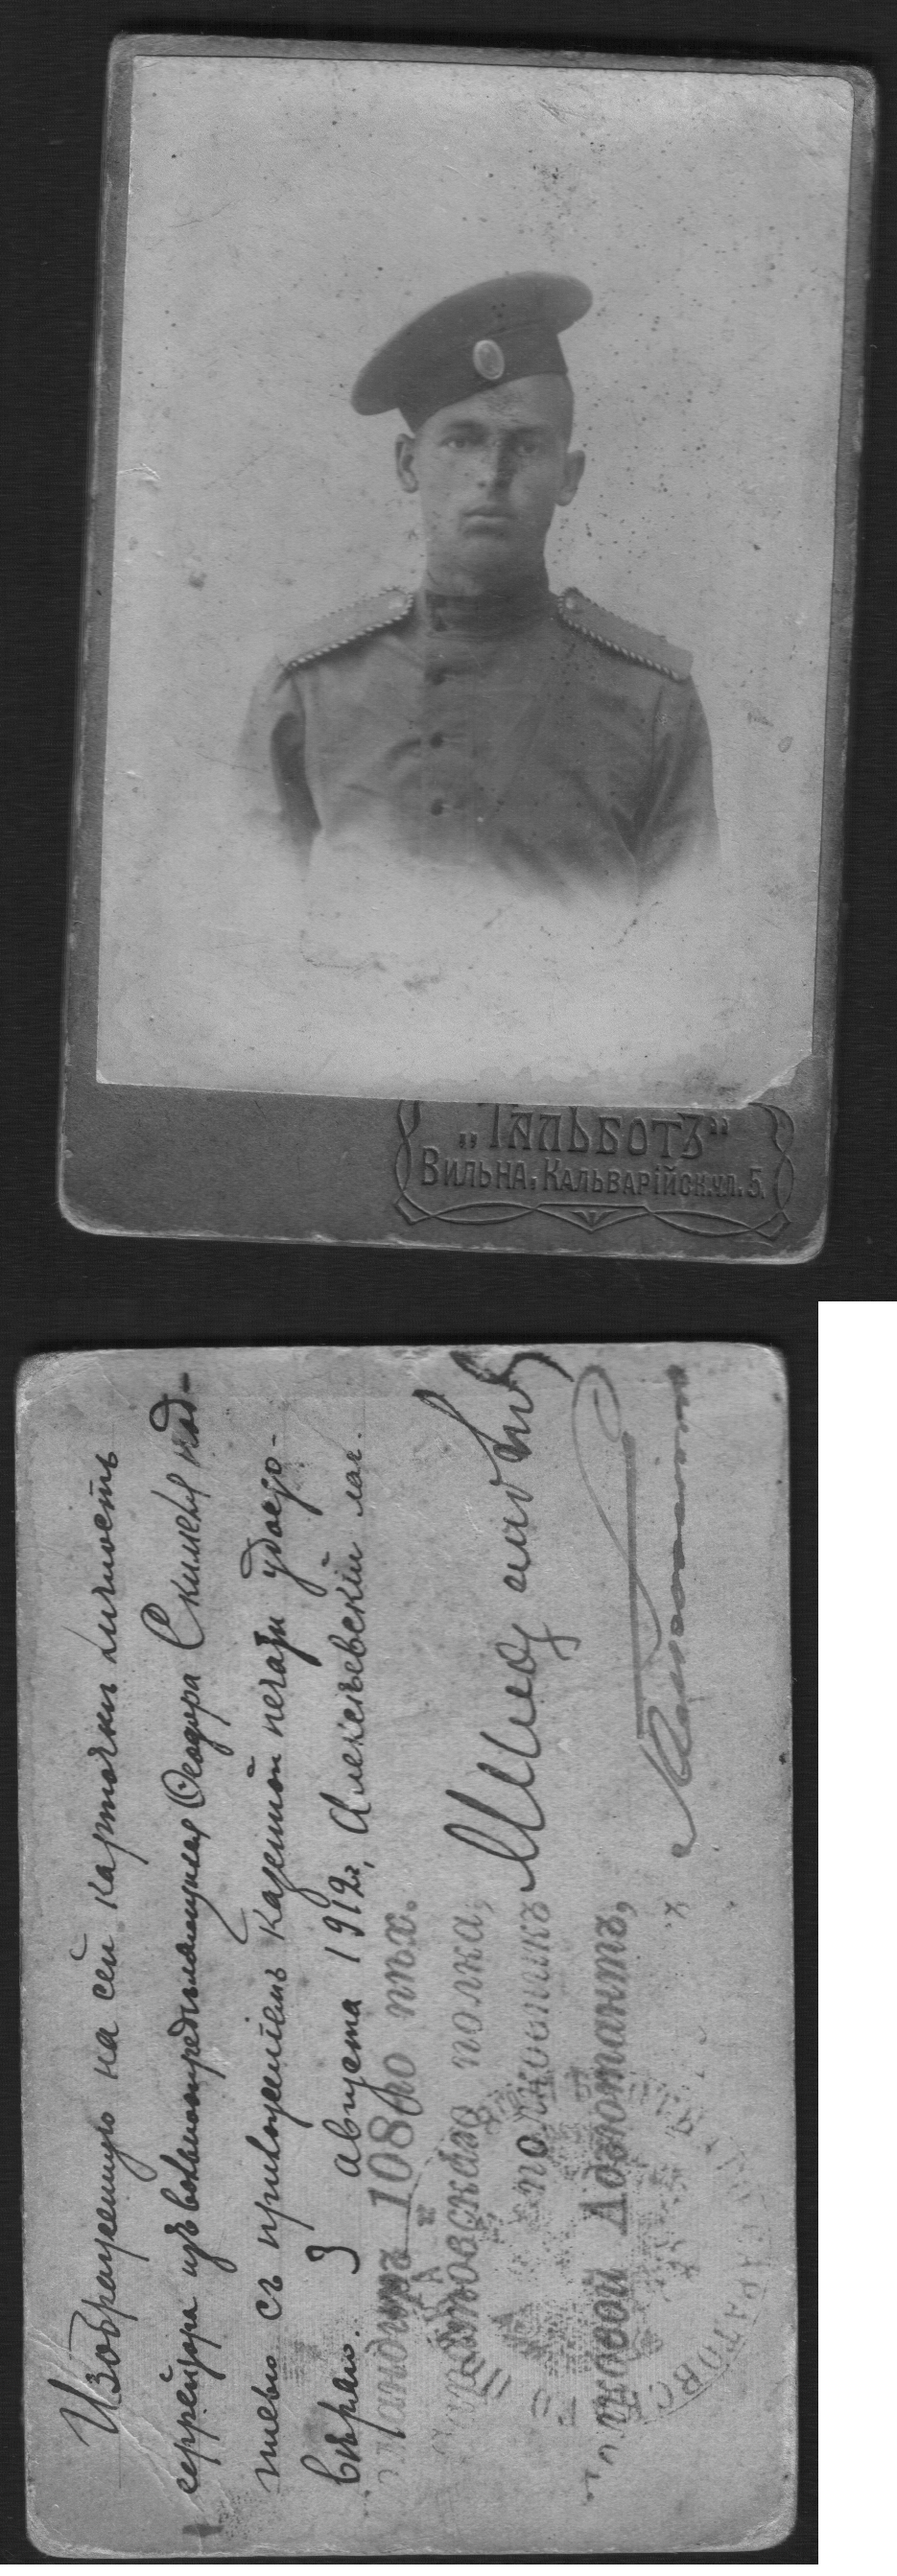 „ТАЛЬБОТЪ“
ВИЛЬНА, КАЛЬВАРІЙСК. УЛ. 5.
Изображенную на сей карточкѣ личность
изъ вольноопредѣляющихся Ѳеодора под-
писью съ приложеніемъ казенной печати удосто-
вѣряю. 3 августа 1912г. Алексѣевскій лаг.
108го пѣх.
Саратовскаго полка,
полковникъ
Полковой Адъютантъ,
САРАТОВСК